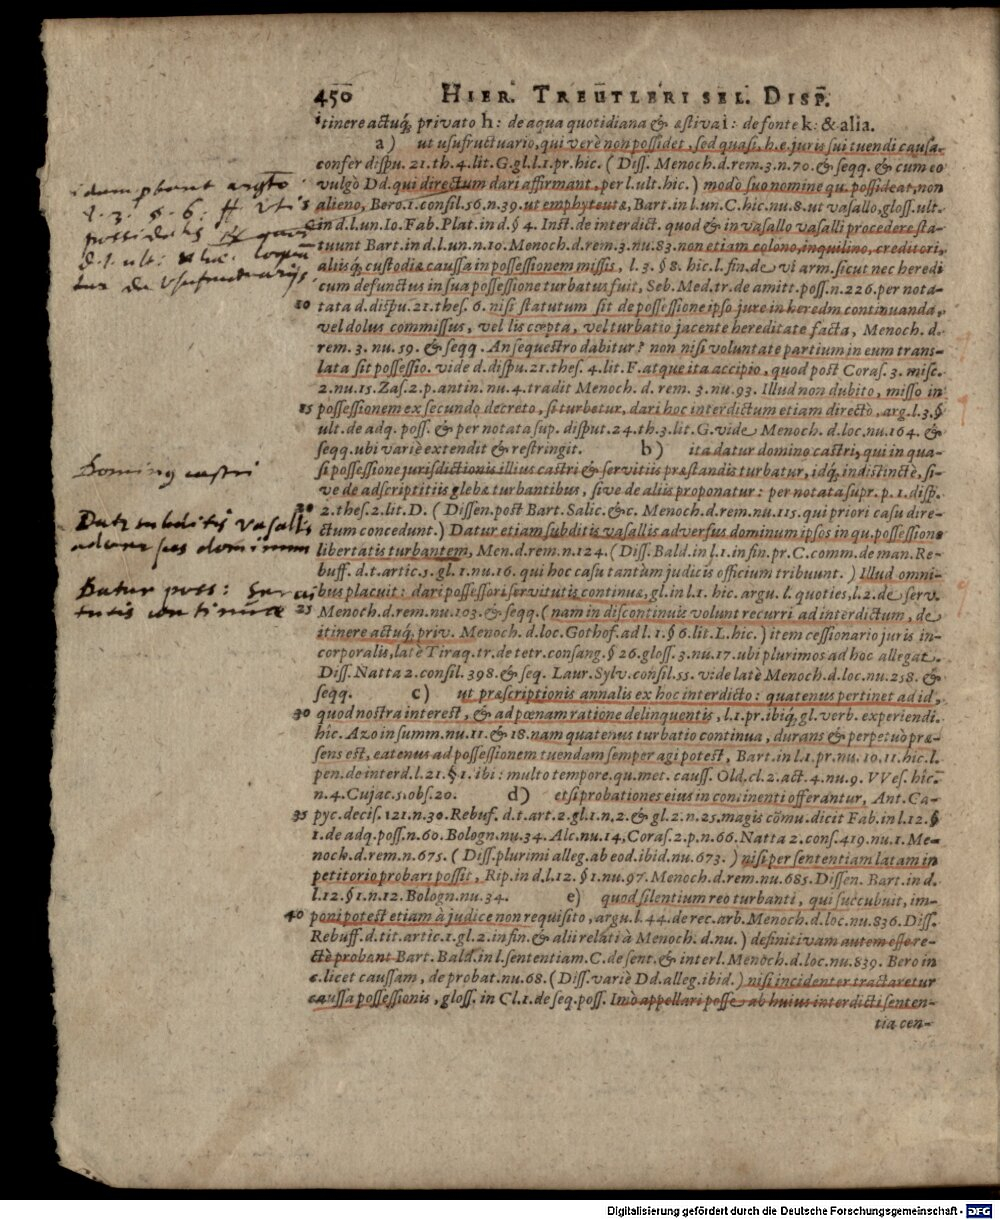 450 HIER. TREUTLERI SEL. DISP.
itinere actuq́; privato h: de aqua quotidiana & æstiva i: de fonte k: & alia.
a) ut usufructuario, qui verè non possidet, sed quasi, h.e. juris sui tuendi causa.
confer dispu. 21. th. 4. lit. G. gl. l. 1. pr. hic. ( Diss. Menoch. d. rem. 3. n. 70. & seqq. & cum eo
vulgò Dd. qui directum dari affirmant, per l. ult. hic. ) modò suo nomine qu. possideat, non
alieno, Bero. 1. consil. 56. n. 39. ut emphyteutæ, Bart. in l. un. C. hic. nu. 8. ut vasallo, gloss. ult.
in d. l. un. Io. Fab. Plat. in d. § 4. Inst. de interdict. quod & in vasallo vasalli procedere sta-
tuunt Bart. in d. l. un. n. 10. Menoch. d. rem. 3. nu. 83. non etiam colono, inquilino, creditori,
aliisq́; custodiæ caussa in possessionem missis, l. 3. § 8. hic. l. fin. de vi arm. sicut nec heredi
cum defunctus in sua possessione turbatus fuit, Seb. Med. tr. de amitt. poss. n. 226. per nota-
10 tata d. dispu. 21. thes. 6. nisi statutum sit de possessione ipso jure in heredm continuanda,
vel dolus commissus, vel lis cœpta, vel turbatio jacente hereditate facta, Menoch. d.
rem. 3. nu. 59. & seqq. An sequestro dabitur? non nisi voluntate partium in eum trans-
lata sit possessio. vide d. dispu. 21. thes. 4. lit. F. atque ita accipio, quod post Coras. 3. misc.
2. nu. 15. Zas. 2. p. antin. nu. 4. tradit Menoch. d. rem. 3. nu. 93. Illud non dubito, misso in
15 possessionem ex secundo decreto, si turbetur, dari hoc interdictum etiam directò, arg. l. 3. §
ult. de adq. poss. & per notata sup. disput. 24. th. 3. lit. G. vide Menoch. d. loc. nu. 164. &
seqq. ubi variè extendit & restringit. b) ita datur domino castri, qui in qua-
Dominus castri
si possessione jurisdictionis illius castri & servitiis præstandis turbatur, idq́; indistinctè, si-
ve de adscriptitiis glebæ turbantibus, sive de aliis proponatur: per notata supr. p. 1. disp.
20 2. thes. 2. lit. D. ( Dissen. post Bart. Salic. &c. Menoch. d. rem. nu. 115. qui priori casu dire-
Datur subditis vasallis
adversus dominum
ctum concedunt. ) Datur etiam subditis vasallis adversus dominum ipsos in qu. possessione
libertatis turbantem, Men. d. rem. n. 124. ( Diss. Bald. in l. 1. in fin. pr. C. comm. de man. Re-
buff. d. t. artic. 5. gl. 1. nu. 16. qui hoc casu tantùm judicis officium tribuunt. ) Illud omni-
Datur poss: Servi
tutis continuæ
bus placuit: dari possessori servitutis continuæ, gl. in l. 1. hic. argu. l. quoties, l. 2. de serv.
25 Menoch. d. rem. nu. 103. & seqq. ( nam in discontinuis volunt recurri ad interdictum, de
itinere actuq́; priv. Menoch. d. loc. Gothof. ad l. 1. § 6. lit. L. hic. ) item cessionario juris in-
corporalis, latè Tiraq. tr. de retr. consang. § 26. gloss. 3. nu. 17. ubi plurimos ad hoc allegat.
Diss. Natta 2. consil. 398. & seq. Laur. Sylv. consil. 55. vide latè Menoch. d. loc. nu. 258. &
seqq. c) ut præscriptionis annalis ex hoc interdicto: quatenus pertinet ad id,
30 quod nostra interest, & ad pœnam ratione delinquentis, l. 1. pr. ibiq́; gl. verb. experiendi.
hic. Azo in summ. nu. 11. & 18. nam quatenus turbatio continua, durans & perpetuò præ-
sens est, eatenus ad possessionem tuendam semper agi potest, Bart. in l. 1. pr. nu. 10. 11. hic. l.
pen. de interd. l. 21. § 1. ibi: multo tempore. qu. met. causs. Old. cl. 2. act. 4. nu. 9. VVes. hîc.
n. 4. Cujac. 5. obs. 20. d) etsi probationes eius in continenti offerantur, Ant. Ca-
35 pyc. decis. 121. n. 30. Rebuf. d. t. art. 2. gl. 1. n. 2. & gl. 2. n. 25. magis cõmu. dicit Fab. in l. 12. §
1. de adq. poss. n. 60. Bologn. nu. 34. Alc. nu. 14, Coras. 2. p. n. 66. Natta 2. cons. 419. nu. 1. Me-
noch. d. rem. n. 675. ( Diss. plurimi alleg. ab eod. ibid. nu. 673. ) nisi per sententiam latam in
petitorio probari possit, Rip. in d. l. 12. § 1. nu. 97. Menoch. d. rem. nu. 685. Dissen. Bart. in d.
l. 12. § 1. n. 12. Bologn. nu. 34. e) quod silentium reo turbanti, qui succubuit, im-
40 poni potest etiam à judice non requisito, argu. l. 44. de rec. arb. Menoch. d. loc. nu. 836. Diss.
Rebuff. d. tit. artic. 1. gl. 2. in fin. & alii relati à Menoch. d. nu. ) definitivam autem esse re-
ctè probant Bart. Bald. in l. sententiam. C. de sent. & interl. Menoch. d. loc. nu. 839. Bero in
c. licet caussam, de probat. nu. 68. (Diss. variè Dd. alleg. ibid. ) nisi incidenter tractaretur
caussa possessionis, gloss. in Cl. 1. de seq. poss. Imò appellari posse ab huius interdicti senten-
tia cen-
Digitalisierung gefördert durch die Deutsche Forschungsgemeinschaft - DFG